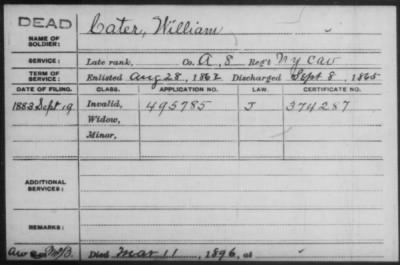 DEAD
NAME OF SOLDIER: Cater, William
SERVICE: Late rank, Co. A, 8 Reg't N y cav
TERM OF SERVICE: Enlisted Aug 28, 1862 Discharged Sept 8, 1865
DATE OF FILING. CLASS. APPLICATION NO. LAW. CERTIFICATE NO.
1883 Sept 19 Invalid, 495785 J 374287
Widow,
Minor,
ADDITIONAL SERVICES:
REMARKS:
Died Mar 11, 1896, at